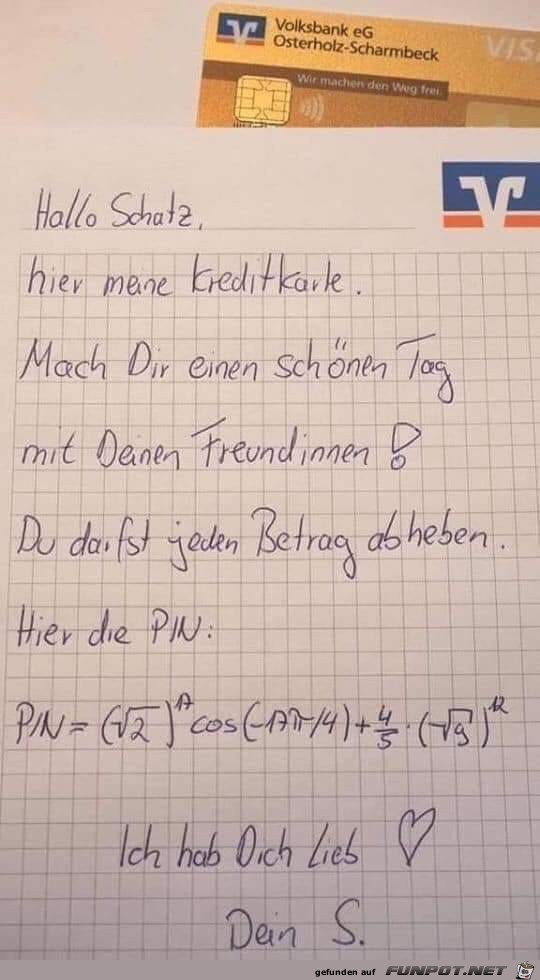 Volksbank eG
Osterholz-Scharmbeck
VISA
Wir machen den Weg frei.
Hallo Schatz,
hier meine Kreditkarte.
Mach Dir einen schönen Tag
mit Deinen Freundinnen!
Du darfst jeden Betrag abheben.
Hier die PIN:
PIN = (√2)^17 cos(-17π/4) + 4/5 · (√9)^12
Ich hab Dich Lieb ♡
Dein S.
gefunden auf FUNPOT.NET